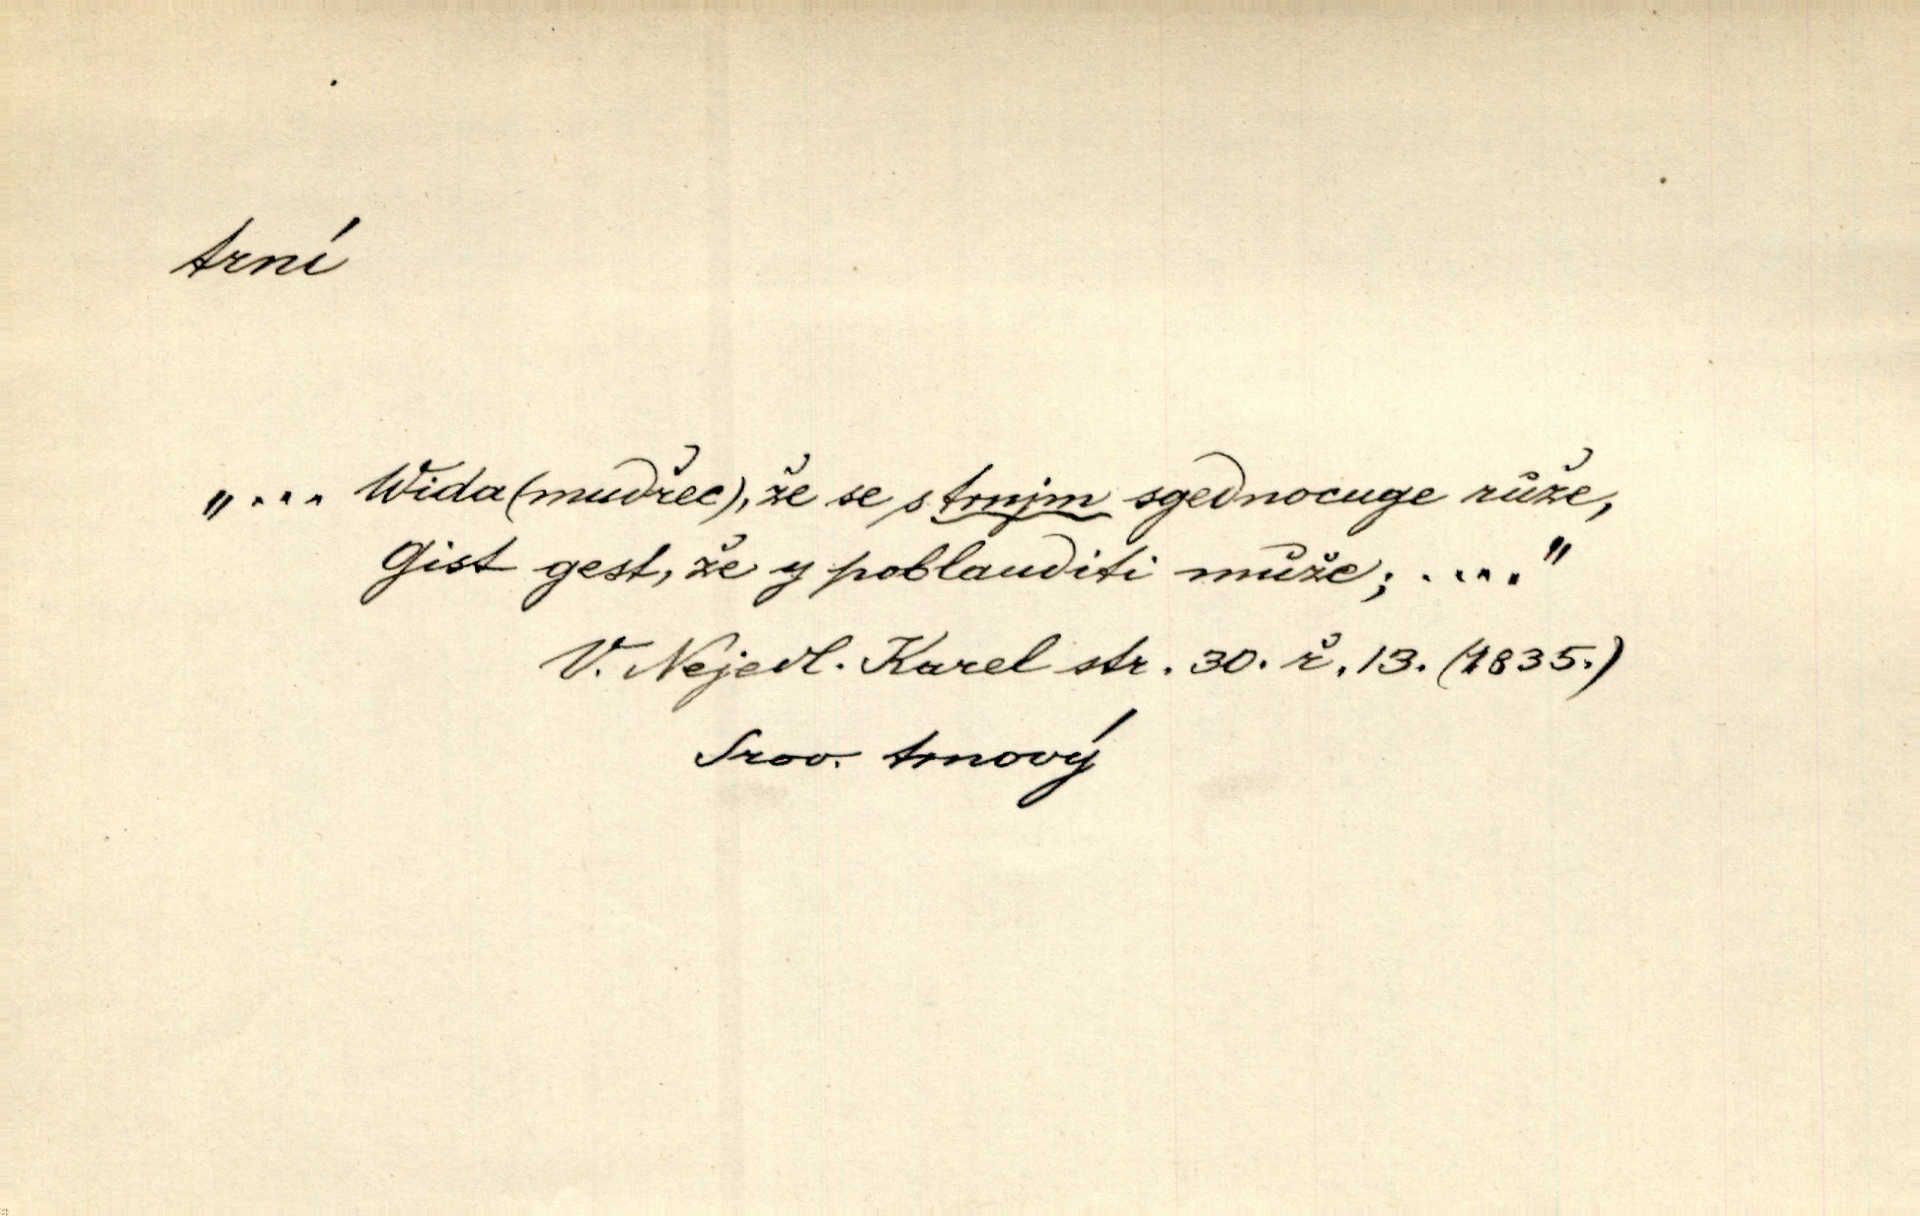 trní
„... Wida (mudřec), že se s trnjm sgednocuge růže,
Gist gest, že y poblauditi může; ...."
V. Nejedl. Karel str. 30. ř. 13. (1835.)
Srov. trnový